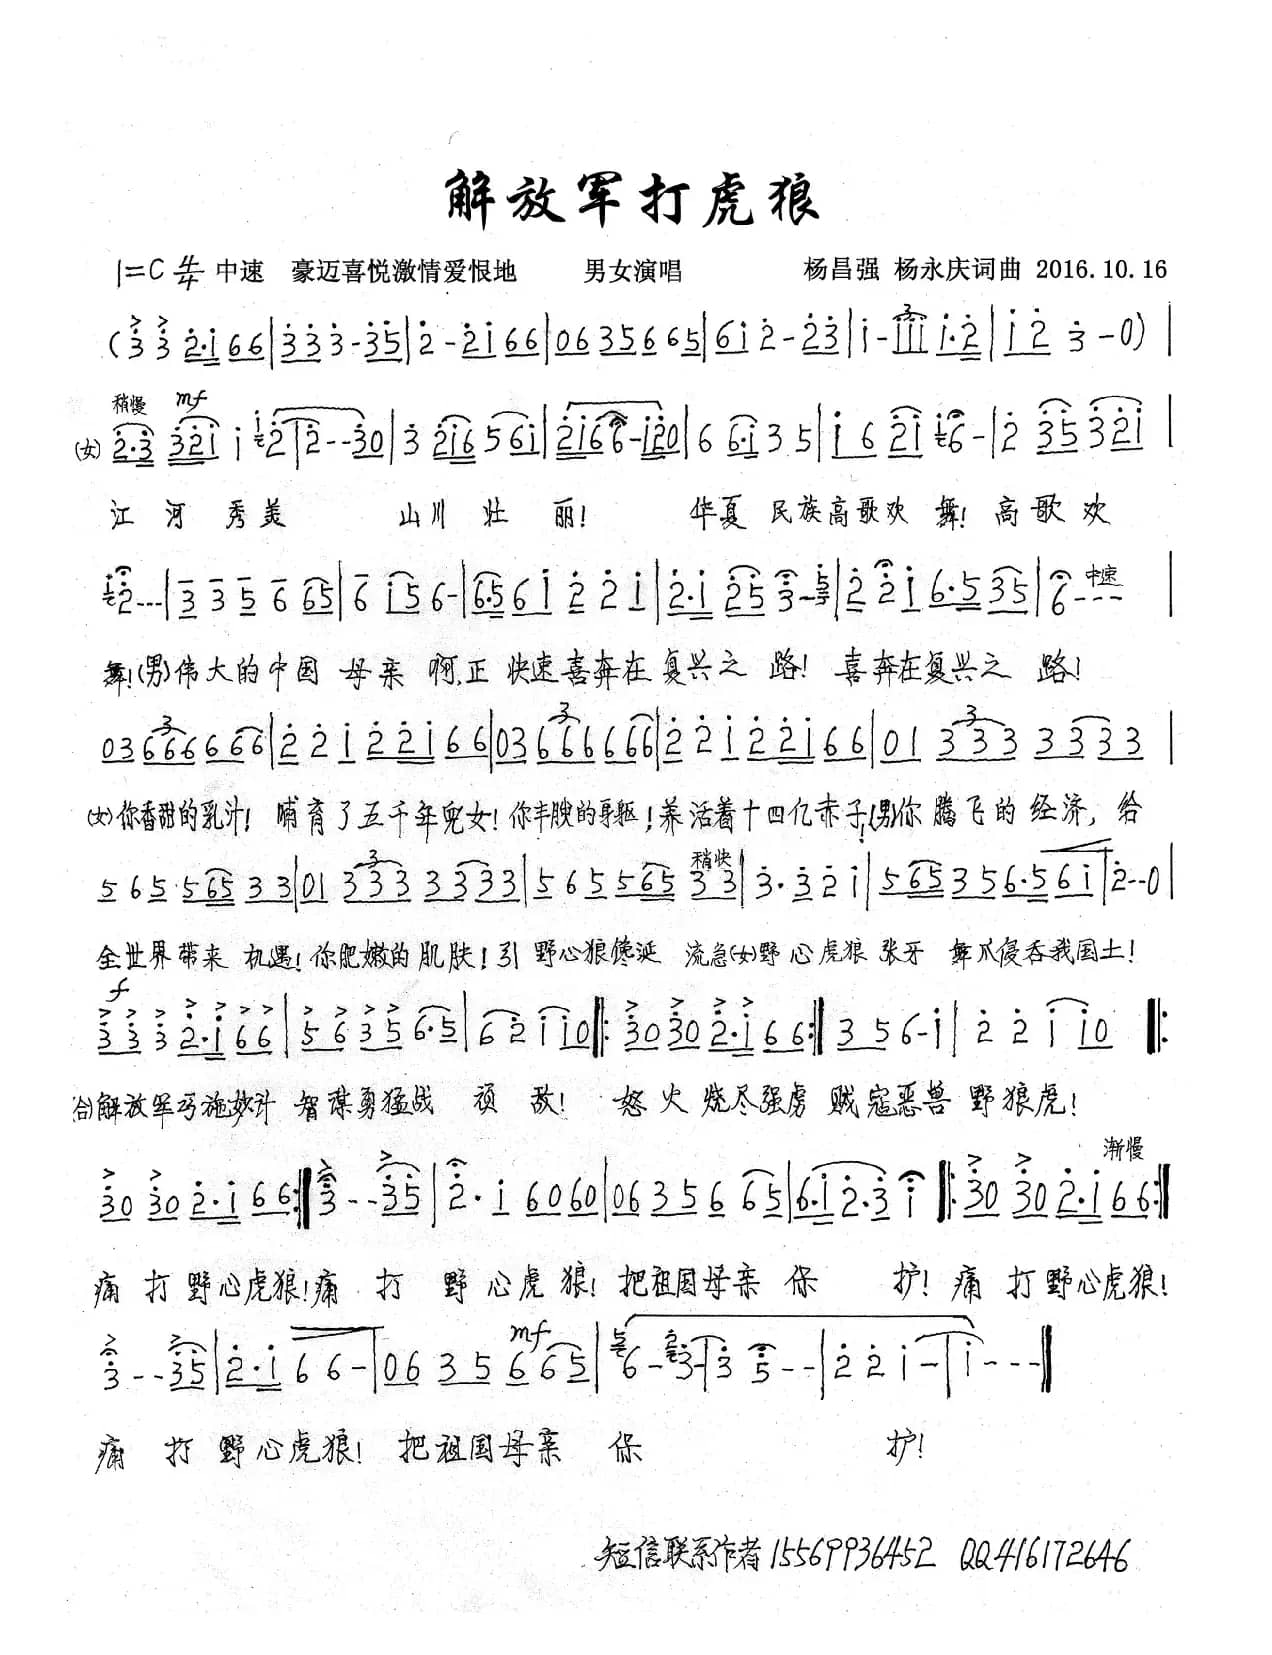 解放军打虎狼
1=C 4/4 中速 豪迈喜悦激情爱恨地 男女演唱 杨昌强 杨永庆词曲 2016.10.16
(3 3 2·1 6 6|3 3 3-3 5|2-2 1 6 6|0 6 3 5 6 6 5|6 1 2-2 3|1-1 1 1 1·2|1 2 3-0)|
稍慢 mf
(女) 2·3 3 2 1 1 2|2--3 0|3 2 1 6 5 6 1|2 1 6 6-1 2 0|6 6·1 3 5|1 6 2 1 6-|2 3 5 3 2 1|
江河秀美 山川壮丽! 华夏民族高歌欢舞! 高歌欢
2---|3 3 5 6 6 5|6 1 5 6-|6·5 6 1 2 2 1|2·1 2 5 3-|2 2 1 6·5 3 5|6 中速 ---|
舞!(男)伟大的中国母亲啊,正快速喜奔在复兴之路! 喜奔在复兴之路!
0 3 6 6 6 6 6 6 6|2 2 1 2 2 1 6 6|0 3 6 6 6 6 6 6 6|2 2 1 2 2 1 6 6|0 1 3 3 3 3 3 3 3|
(女)你香甜的乳汁! 哺育了五千年儿女! 你丰腴的身躯! 养活着十四亿赤子!(男)你腾飞的经济,给
稍快
5 6 5 5 6 5 3 3|0 1 3 3 3 3 3 3 3|5 6 5 5 6 5 3 3|3·3 2 1|5 6 5 3 5 6·5 6 1|2--0
全世界带来机遇! 你肥嫩的肌肤! 引野心狼馋涎流急(女)野心虎狼张牙舞爪侵吞我国土!
f
3 3 3 2·1 6 6|5 6 3 5 6·5|6 2 1 1 0‖:3 0 3 0 2·1 6 6:‖3 5 6-1|2 2 1 1 0‖:
(合)解放军巧施妙计智谋勇猛战顽敌! 怒火烧尽强虏贼寇恶兽野狼虎!
渐慢
3 0 3 0 2·1 6 6:‖3--3 5|2·1 6 0 6 0|0 6 3 5 6 6 5|6·1 2·3 1‖:3 0 3 0 2·1 6 6:‖
痛打野心虎狼!痛打野心虎狼! 把祖国母亲保护! 痛打野心虎狼!
mf
3--3 5|2·1 6 6-|0 6 3 5 6 6 5|6-3-|3 5--|2 2 1-|1---‖
痛打野心虎狼! 把祖国母亲保护!
短信联系作者15569936452 QQ416172646